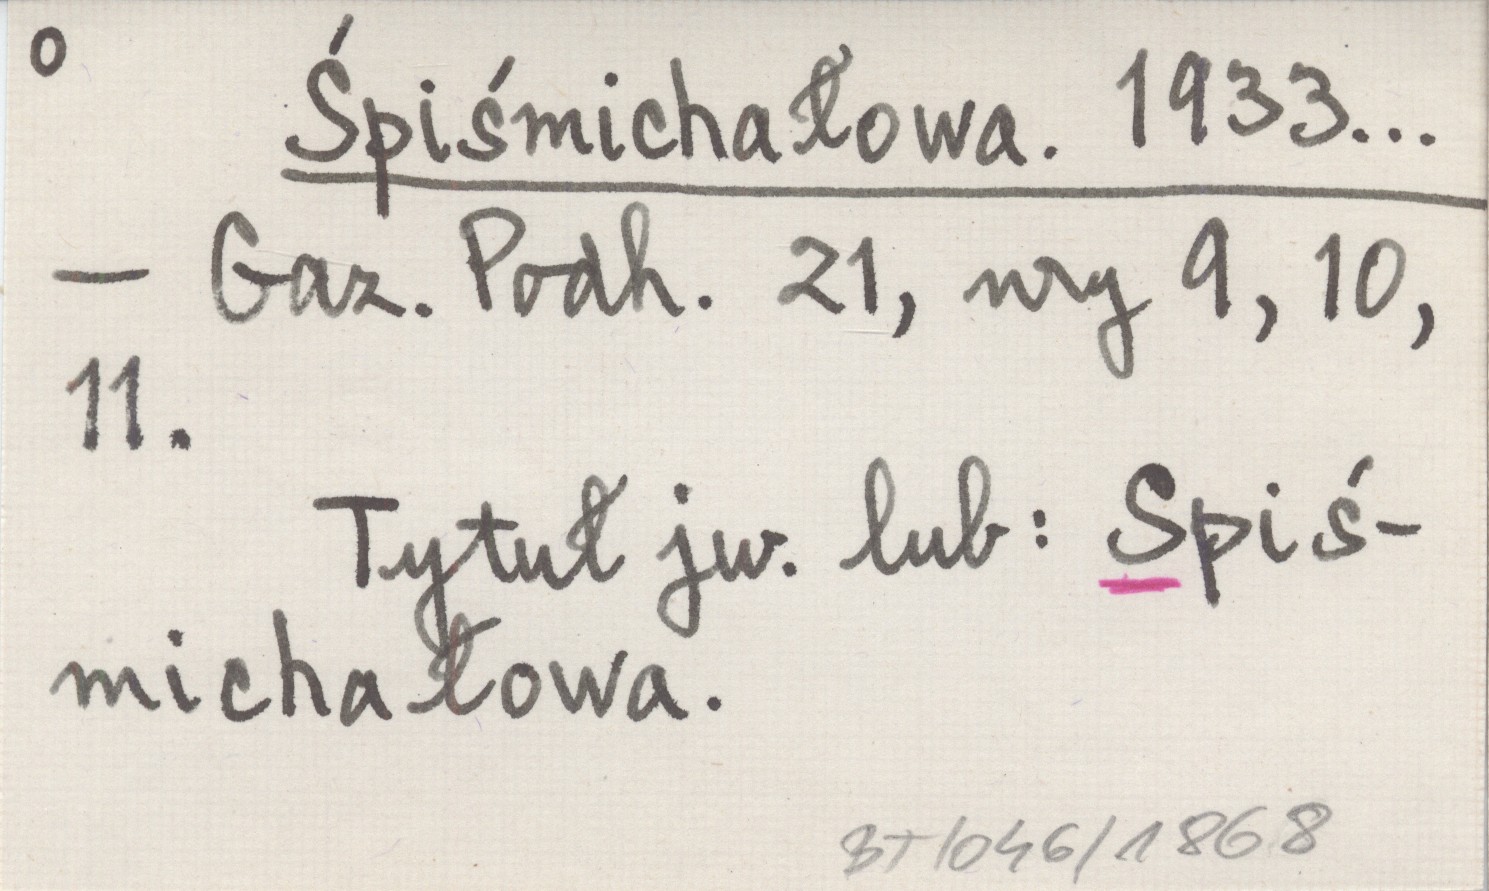 o
Śpiśmichałowa. 1933...
— Gaz. Podh. 21, nry 9, 10,
11.
Tytuł jw. lub: Spiś-
michałowa.
BT/046/1868